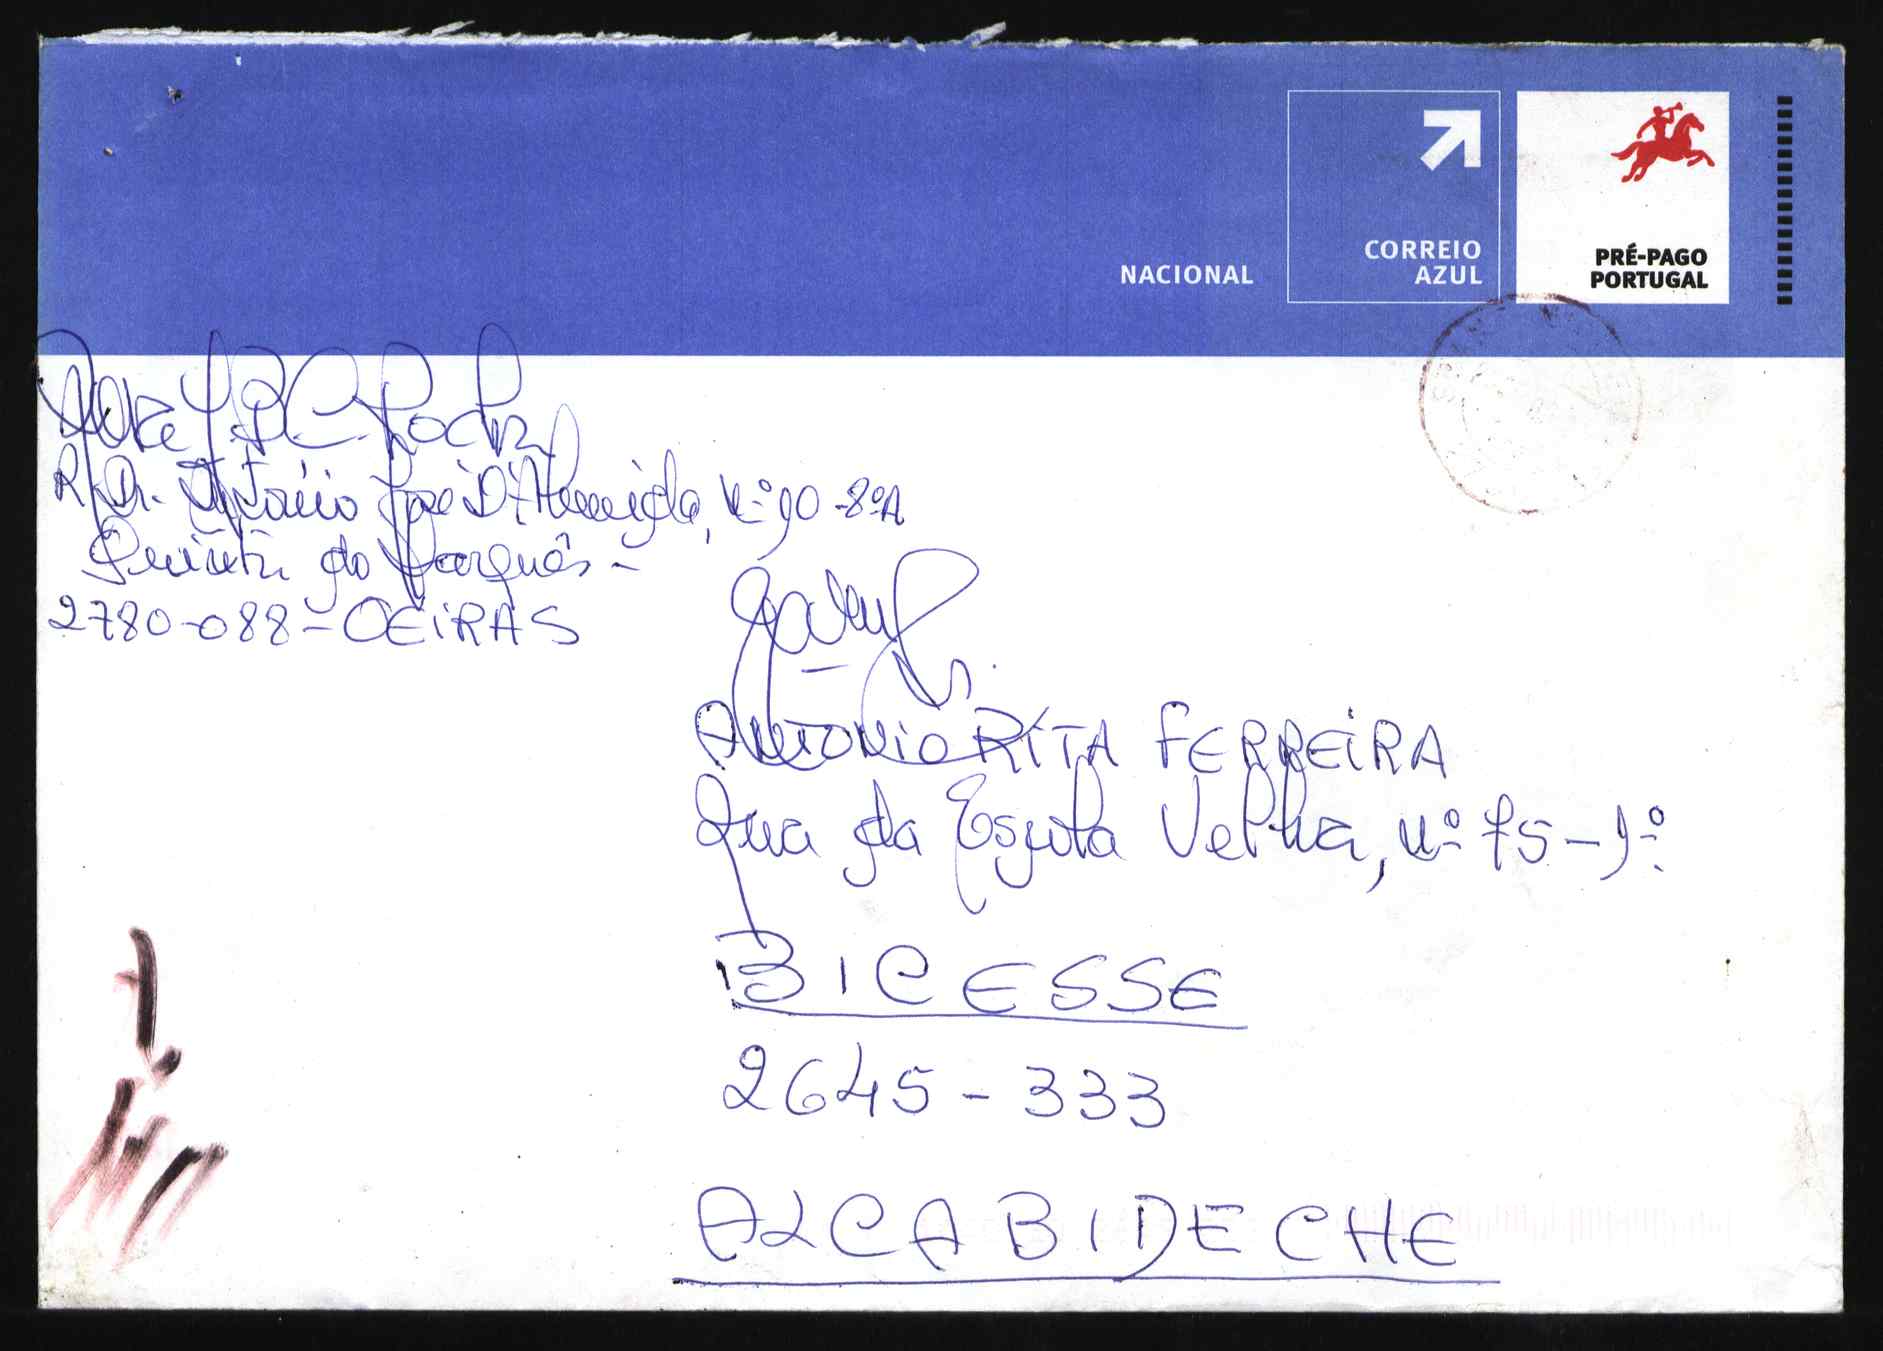 NACIONAL
CORREIO
AZUL
PRÉ-PAGO
PORTUGAL
José F. B. C. Rocha
R. Dr. António José D'Almeida, Nº 90 - 8ºA
Quinta do Marquês -
2780-088 - OEIRAS
António RITA FERREIRA
Rua da Escola Velha, nº 75 - 1º
BICESSE
2645 - 333
ALCABIDECHE